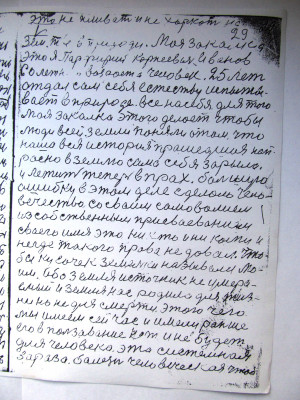 это не плюват и не харкот на
29
Моя закалка
это я. Парфирий Корнеевич Иванов
человек. 25 лет
отдал сам себя естеству испыты-
вает в природе. все на себя для того
Моя закалка этого делает чтобы
люди всей земли поняли о том что
наша вся история прошедшая нап-
расно в землю само себя зарыло.
и летит теперь в прах. большую
ошибку в этом деле сделоль чело-
вечество со своим самоволием
и с собственным присваеванием
своего имя это ни кто и ни когда и
негде такого права не довал. Что-
бы кусочек земли называли мо-
им. ибо земля источник не умера-
емый и земля нас родила для жиз-
ни но не для смерти этого чего
мы имеем сейчас и имели раньше
его в ползавание нет и не будет
для человека это системная
зараза. болезь человеческая этой